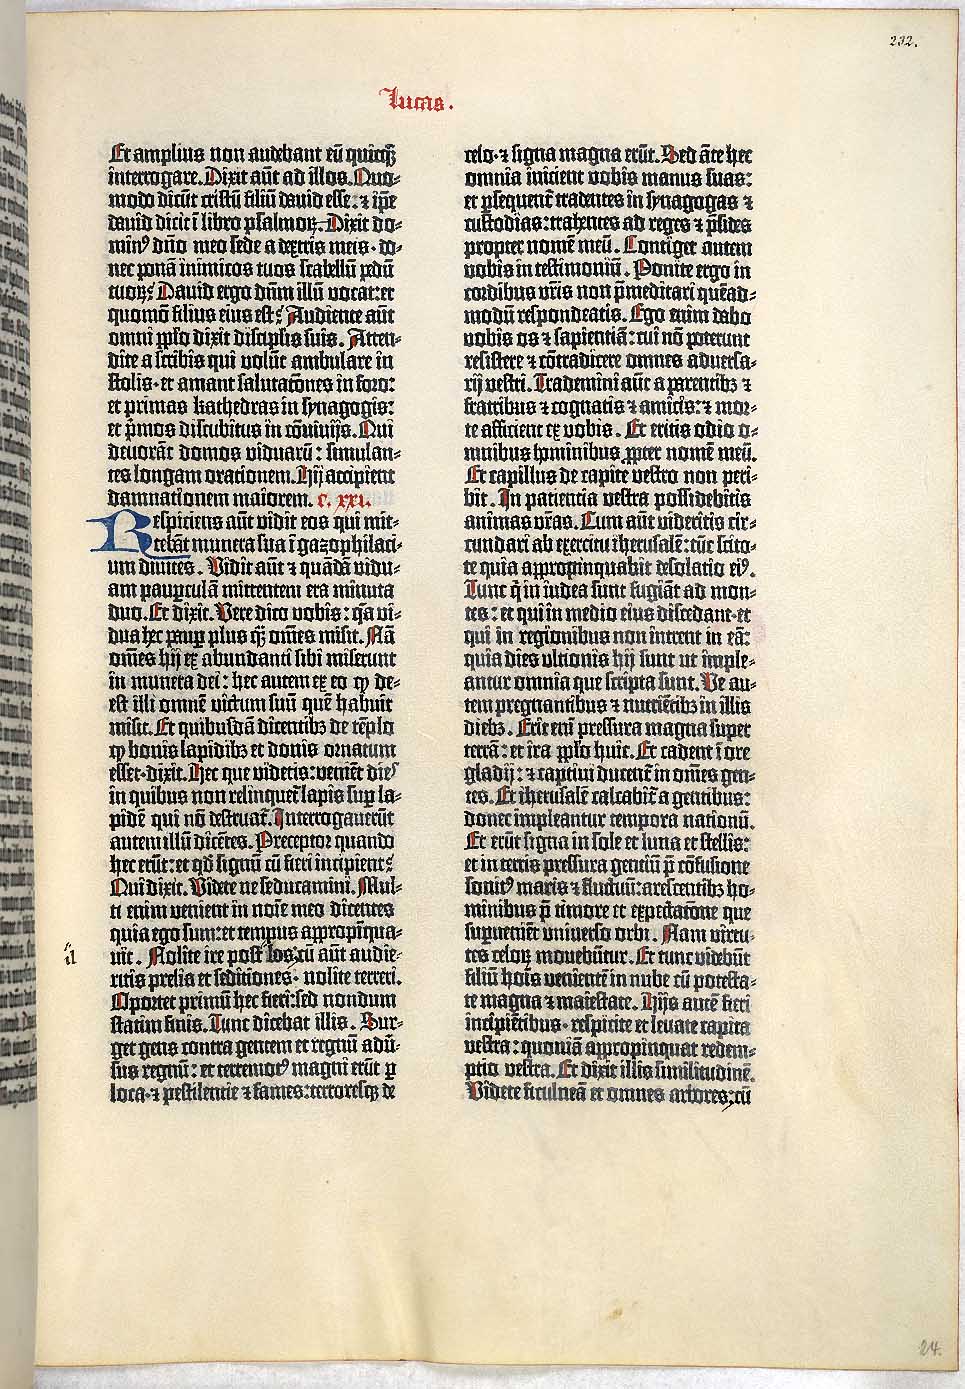 232.
Lucas.
Et amplius non audebant eū quicq̄
interrogare. Dixit aūt ad illos. Quo-
modo dicūt cristū filiū dauid esse: ⁊ ip̄e
dauid dicit ī libro psalmoꝝ. Dixit do-
minꝰ dn̄o meo sede a dextris meis· do-
nec ponā inimicos tuos scabellū pedū
tuoꝝ? Dauid ergo dn̄m illū vocat: et
quomō filius eius est? Audiente aūt
omni pp̄lo dixit discip̄lis suis. Atten-
dite a scribis qui volūt ambulare in
stolis· et amant salutatōnes in foro:
et primas kathedras in synagogis:
et p̄mos discubitus in cōviuijs. Qui
deuorāt domos viduarū: simulan-
tes longam orationem. Hij accipient
damnationem maiorem. c. xxi.
Respiciens aūt vidit eos qui mit-
tebāt munera sua ī gazophilaci-
um diuites. Vidit aūt ⁊ quādā vidu-
am paupculā mittentem era minuta
duo. Et dixit. Vere dico vobis: q̄a vi-
dua hec paup plus q̄ om̄es misit. Nā
om̄es hij ex abundanti sibi miserunt
in munera dei: hec autem ex eo ꝙ de-
est illi omnē victum suū quē habuit
misit. Et quibusdā dicentibꝫ de tēplo
ꝙ bonis lapidibꝫ et donis ornatum
esset· dixit. Hec que videtis: veniēt dieˢ
in quibus non relinquet᷑ lapis suꝑ la-
pidē qui nō destruat᷑. Interrogauerūt
autem illū dicētes. Preceptor quando
hec erūt: et qd̄ signū cū fieri incipient?
Qui dixit. Videte ne seducamini. Mul-
ti enim venient in noīe meo dicentes
quia ego sum: et tempus appropīqua-
uit. Nolite ire post "los: cū aūt audie-
" il
ritis prelia et seditiones· nolite terreri.
Oportet primū hec fieri: sed nondum
statim finis. Tunc dicebat illis. Sur-
get gens contra gentem et regnū adū-
sus regnū: et terremotꝰ magni erūt ꝑ
loca· ⁊ pestilentie ⁊ fames: terroresqꝫ de
celo· ⁊ signa magna erūt. Sed āte hec
omnia inicient vobis manus suas:
et ꝑsequent᷑ tradentes in synagogas ⁊
custodias: trahentes ad reges ⁊ p̄sides
propter nomē meū. Continget autem
vobis in testimoniū. Ponite ergo in
cordibus vr̄is non p̄meditari quēad-
modū respondeatis. Ego enim dabo
vobis os ⁊ sapientiā: cui nō poterunt
resistere ⁊ cōtradicere omnes aduersa-
rij vestri. Trademini aūt a parentibꝫ ⁊
fratribus ⁊ cognatis ⁊ amicis: ⁊ mor-
te afficient ex vobis. Et eritis odio o-
mnibus hominibus ꝓpter nomē meū.
Et capillus de capite vestro non peri-
bit. In patientia vestra possidebitis
animas vr̄as. Cum aūt videritis cir-
cundari ab exercitu iherusalē: tūc scito-
te quia appropinquabit desolatio eiꝰ.
Tunc q̄ in iudea sunt fugiāt ad mon-
tes: et qui in medio eius discedant· et
qui in regionibus non intrent in eā:
quia dies vltionis hij sunt ut imple-
antur omnia que scripta sunt. Ve au-
tem pregnantibus ⁊ nutriētibꝫ in illis
diebꝫ. Erit enī pressura magna super
terrā: et ira pp̄lo huic. Et cadent ī ore
gladij: ⁊ captiui ducent᷑ in om̄es gen-
tes. Et iherusalē calcabit᷑ a gentibus:
donec impleantur tempora nationū.
Et erūt signa in sole et luna et stellis:
et in terris pressura gentiū p̄ cōfusione
sonitꝰ maris ⁊ fluctuū: arescentibꝫ ho-
minibus p̄ timore et expectatōne que
suꝑueniēt vniuerso orbi. Nam virtu-
tes celoꝝ mouebūtur. Et tunc videbūt
filiū hoīs venientē in nube cū potesta-
te magna ⁊ maiestate. Hijs autē fieri
incipiētibus· respicite et leuate capita
vestra: quoniā appropinquat redem-
ptio vestra. Et dixit illis similitudinē.
Videte ficulneā et omnes arbores: cū
24.